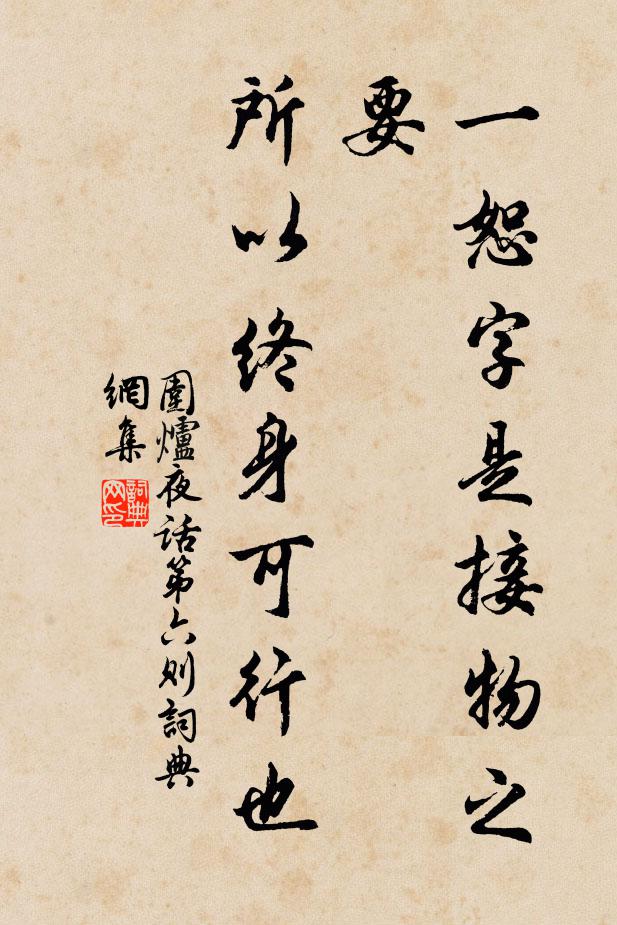 一恕字是接物之
要
所以終身可行也
圍爐夜話第六则詞典
網集
詞典
网印